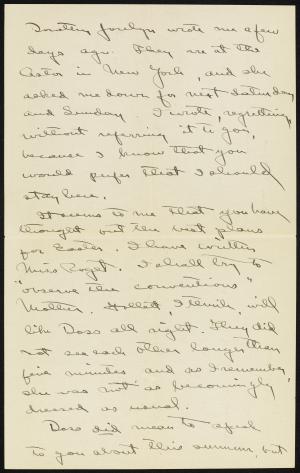 Dorothy Jocelyn wrote me a few
days ago. They are at the
Astor in New York, and she
asked me down for next Saturday
and Sunday. I wrote, regretting,
without referring it to you,
because I know that you
would prefer that I should
stay here.
It seems to me that you have
thought out the best plans
for Easter. I have written
Miss. I shall try to
"observe the conventions"
Mother., I think, will
like Doss all right. They did
not see each other longer than
five minutes and as I remember,
she was not as becomingly
dressed as usual.
Doss did mean to speak
to you about this summer, but